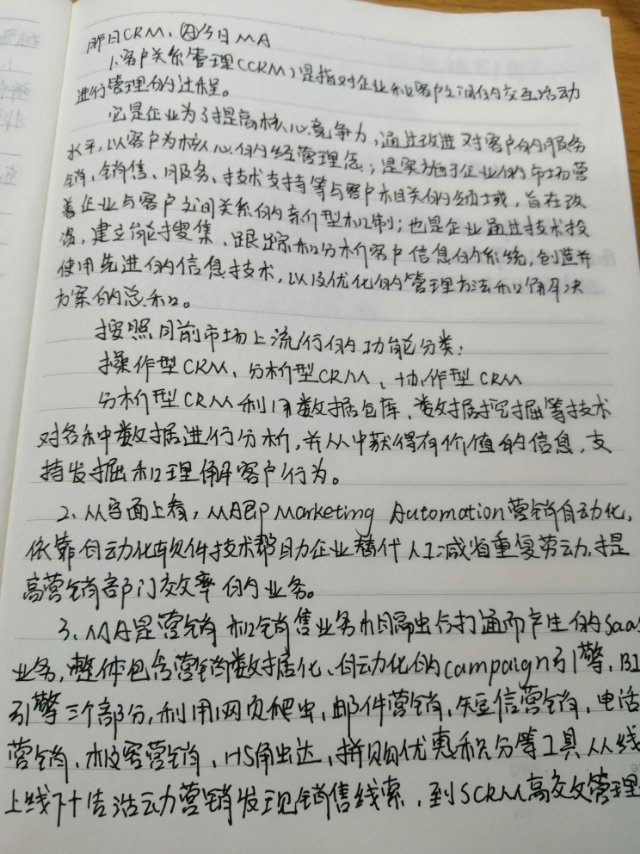 昨日CRM、今日MA
1.客户关系管理(CRM)是指对企业和客户之间的交互活动
进行管理的过程。
它是企业为了提高核心竞争力,通过改进对客户的服务
水平,以客户为核心的经营理念;是实施于企业的市场营
销、销售、服务、技术支持等与客户相关的领域,旨在改
善企业与客户之间关系的新型机制;也是企业通过技术投
资,建立能搜集、跟踪和分析客户信息的系统,创造并
使用先进的信息技术,以及优化的管理方法和解决
方案的总和。
按照目前市场上流行的功能分类:
操作型CRM、分析型CRM、协作型CRM
分析型CRM利用数据仓库、数据挖掘等技术
对各种数据进行分析,并从中获得有价值的信息,支
持发掘和理解客户行为。
2、从字面上看,MA即Marketing Automation营销自动化,
依靠自动化软件技术帮助企业替代人工减省重复劳动,提
高营销部门效率的业务。
3、MA是营销和销售业务相隔出与打通而产生的SaaS
业务,整体包含营销数据化、自动化的campaign引擎、BI
引擎三个部分,利用网页爬虫,邮件营销,短信营销,电话
营销,极客营销,H5触达,拼购优惠积分等工具从线
上线下广告活动营销发现销售线索,到SCRM高效管理